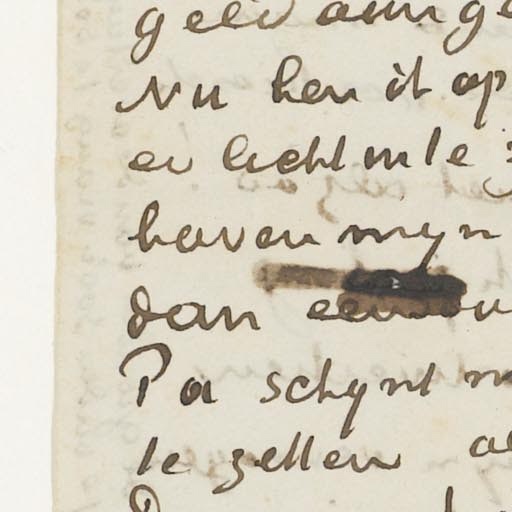 geld aan
Nu ben ik op
er licht in te
boven mijn
dan eens
Pa schijnt
te zetten